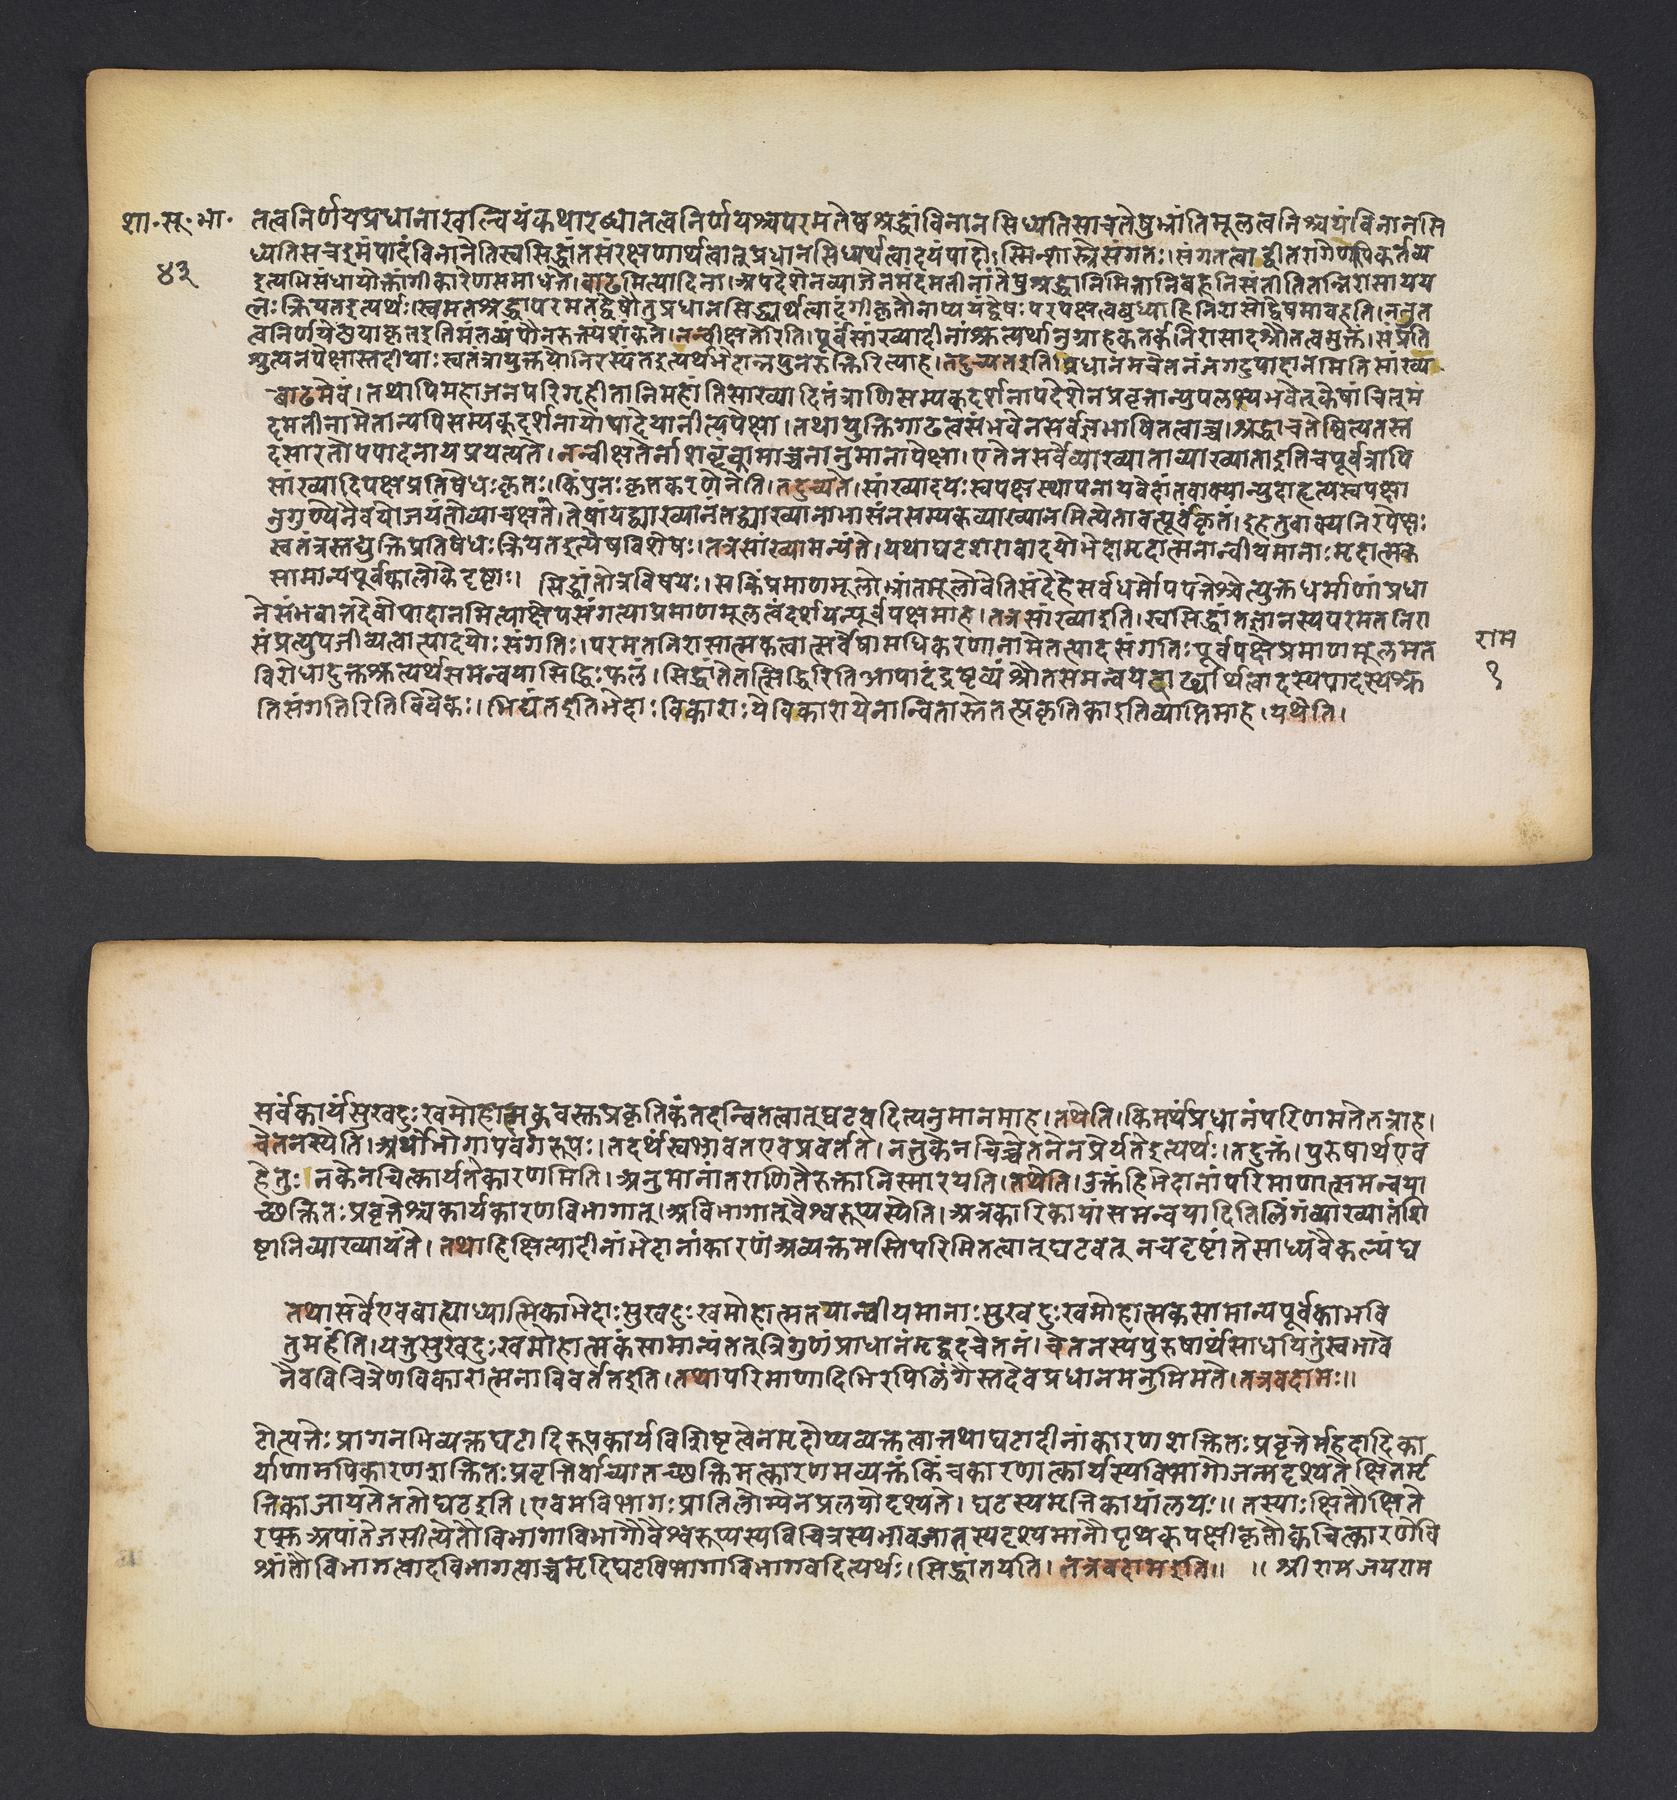 शा. सू. भा.
४३
तत्वनिर्णयप्रधानाखल्वियंकथारब्धातत्वनिर्णयश्चपरमतेष्वश्रद्धांविनानसिध्यतिसाचतेषुभ्रांतिमूलत्वनिश्चयंविनानसि
ध्यतिसचइमंपादंविनानेतिस्वसिद्धांतसंरक्षणार्थत्वात्प्रधानसिध्यर्थत्वादयंपादोऽस्मिन्शास्त्रेसंगतः।संगतत्वाद्वीतरागेणापिकर्तव्य
इत्यभिसंधायोक्तांगीकारेणसमाधत्ते।बाढमित्यादिना।अपदेशेनव्याजेनमंदमतीनांतेषुश्रद्धानिमित्तानिबहूनिसंतीतितन्निरासाययय
त्नःक्रियतइत्यर्थः।स्वमतश्रद्धापरमतद्वेषौतुप्रधानसिद्ध्यर्थत्वादंगीकृतौनाप्ययंद्वेषःपरपक्षत्वबुध्याहिनिरासोद्वेषमावहति।ननुत
त्वनिर्णयेछयाकृतइतिमंतव्यंपौनरुक्त्यंशंकते।नन्वीक्षतेरिति।पूर्वंसांख्यादीनांश्रुत्यर्थानुग्राहकतर्कनिरासादश्रौतत्वमुक्तं।संप्रति
श्रुत्यनपेक्षास्तदीयाःस्वतंत्रायुक्तयोनिरस्यंतइत्यर्थभेदान्नपुनरुक्तिरित्याह।तदुच्यतइतिप्रधानमचेतनंजगदुपादानमितिसांख्य
बाढमेवं।तथापिमहाजनपरिगृहीतानिमहांतिसांख्यादितंत्राणिसम्यक्दर्शनापदेशेनप्रवृत्तान्युपलभ्यभवेत्केषांचित्मं
दमतीनामेतान्यपिसम्यक्दर्शनायोपादेयानीत्यपेक्षा।तथायुक्तिगाढत्वसंभवेनसर्वज्ञभाषितत्वाच्च।श्रद्धाचतेष्वित्यतस्त
दसारतोपपादनायप्रयत्यते।नन्वीक्षतेर्नाशब्दंकामाच्चनानुमानापेक्षा।एतेनसर्वेव्याख्याताव्याख्याताइतिचपूर्वत्रापि
सांख्यादिपक्षप्रतिषेधःकृतः।किंपुनःकृतकरणेनेति।तदुच्यते।सांख्यादयःस्वपक्षस्थापनायवेदांतवाक्यान्युदाहृत्यस्वपक्षा
नुगुण्येनैवयोजयंतोव्याचक्षते।तेषांयद्व्याख्यानंतद्व्याख्यानाभासंनसम्यक्व्याख्यानमित्येतावत्पूर्वंकृतं।इहतुवाक्यनिरपेक्षः
स्वतंत्रस्तद्युक्तिप्रतिषेधःक्रियतइत्येषविशेषः।तत्रसांख्यामन्यंते।यथाघटशरावादयोभेदामृदात्मनान्वीयमानाःमृदात्मक
सामान्यपूर्वकालोकेदृष्टाः।
सिद्धांतोत्रविषयः।सकिंप्रमाणमूलोभ्रांतिमूलोवेतिसंदेहेसर्वधर्मोपपत्तेश्चेत्युक्तधर्माणांप्रधा
नेसंभवात्तदेवोपादानमित्याक्षेपसंगत्याप्रमाणमूलत्वंदर्शयन्पूर्वपक्षमाह।तत्रसांख्याइति।स्वसिद्धांतज्ञानस्यपरमतनिरा
संप्रत्युपजीव्यत्वात्पादयोःसंगतिः।परमतनिरासात्मकत्वात्सर्वेषामधिकरणानामेतत्पादसंगतिःपूर्वपक्षेप्रमाणमूलमत
विरोधादुक्तश्रुत्यर्थसमन्वयासिद्धिःफलं।सिद्धांतेतत्सिद्धिरितिआपादंद्रष्टव्यंश्रौतसमन्वयदार्ढ्यार्थत्वादस्यपादस्यश्रु
तिसंगतिरितिविवेकः।भिद्यंतइतिभेदाःविकाराःयेविकारायेनान्वितास्तेतत्प्रकृतिकाइतिव्याप्तिमाह।यथेति।
राम
१
सर्वंकार्यंसुखदुःखमोहात्मकवस्तुप्रकृतिकंतदन्वितत्वात्घटवदित्यनुमानमाह।तथेति।किमर्थंप्रधानंपरिणमतेतत्राह।
चेतनस्येति।अर्थोभोगापवर्गरूपः।तदर्थंस्वभावतएवप्रवर्तते।नतुकेनचिच्चेतनेनप्रेर्यतेइत्यर्थः।तदुक्तं।पुरुषार्थएव
हेतुः।नकेनचित्कार्यतेकारणमिति।अनुमानांतराणितैरुक्तानिस्मारयति।तथेति।उक्तंहिभेदानांपरिमाणात्समन्वया
च्छक्तितःप्रवृत्तेश्चकार्यकारणविभागात्।अविभागात्वैश्वरूप्यस्येति।अत्रकारिकायांसमन्वयादितिलिंगंव्याख्यातंशि
ष्टानिव्याख्यायंते।तथाहिक्षित्यादीनांभेदानांकारणंअव्यक्तमस्तिपरिमितत्वात्घटवत्नचदृष्टांतेसाध्यवैकल्यंघ
तथासर्वेएवबाह्याध्यात्मिकाभेदाःसुखदुःखमोहात्मतयान्वीयमानाःसुखदुःखमोहात्मकसामान्यपूर्वकाभवि
तुमर्हंति।यत्तुसुखदुःखमोहात्मकंसामान्यंतत्त्रिगुणंप्राधानंमृद्वदचेतनं।चेतनस्यपुरुषार्थंसाधयितुंस्वभावे
नैवविचित्रेणविकारात्मनाविवर्ततइति।तथापरिमाणादिभिरपिलिंगैस्तदेवप्रधानमनुमिमते।तत्रवदामः॥
टोत्पत्तेःप्रागनभिव्यक्तघटादिरूपकार्यविशिष्टत्वेनमृदोप्यव्यक्तत्वात्तथाघटादीनांकारणशक्तितःप्रवृत्तेर्महदादिका
र्याणामपिकारणशक्तितःप्रवृत्तिर्वाच्यातच्छक्तिमत्कारणमव्यक्तंकिंचकारणात्कार्यस्यविभागोजन्मदृश्यतेक्षितेर्मृ
त्तिकाजायतेततोघटइति।एवमविभागःप्रातिलोम्येनप्रलयोदृश्यते।घटस्यमृत्तिकायांलयः॥तस्याःक्षितौक्षिते
रप्सुअपांतेजसीत्येतौविभागाविभागौवैश्वरूप्यस्यविचित्रस्यभावजातस्यदृश्यमानौपृथक्पक्षीकृतौक्वचित्कारणेवि
श्रांतौविभागत्वादविभागत्वाच्चमृदिघटविभागाविभागवदित्यर्थः।सिद्धांतयति।तत्रवदामइति॥ ॥श्रीरामजयराम